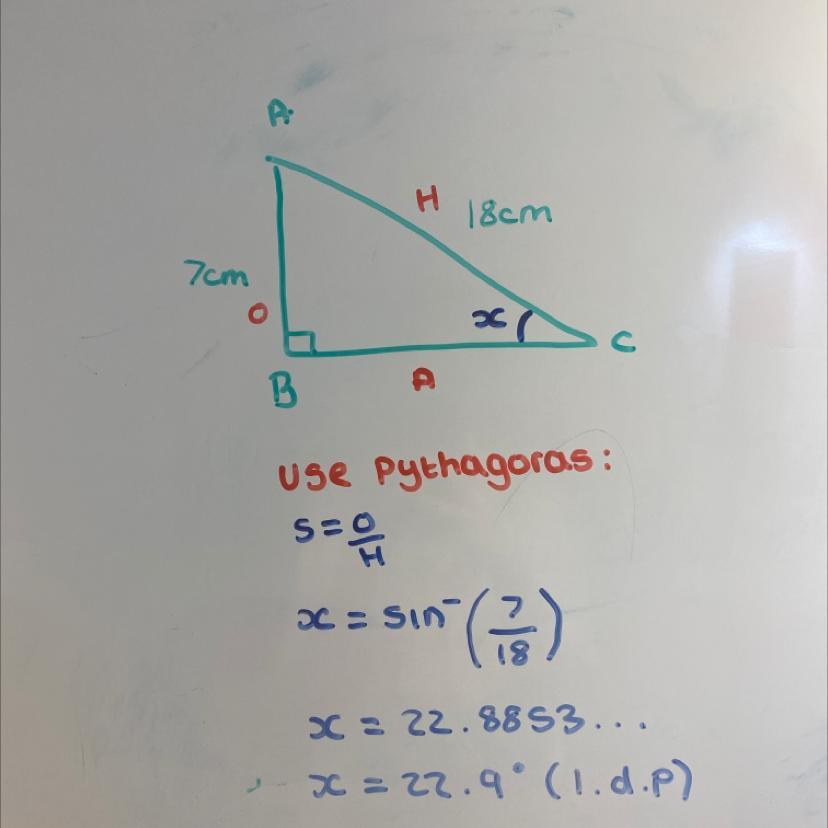 A
H
18cm
7cm
O
x
C
B
A
Use Pythagoras:
S = O/H
x = sin⁻ (7/18)
x = 22.8853...
x = 22.9° (1.d.p)